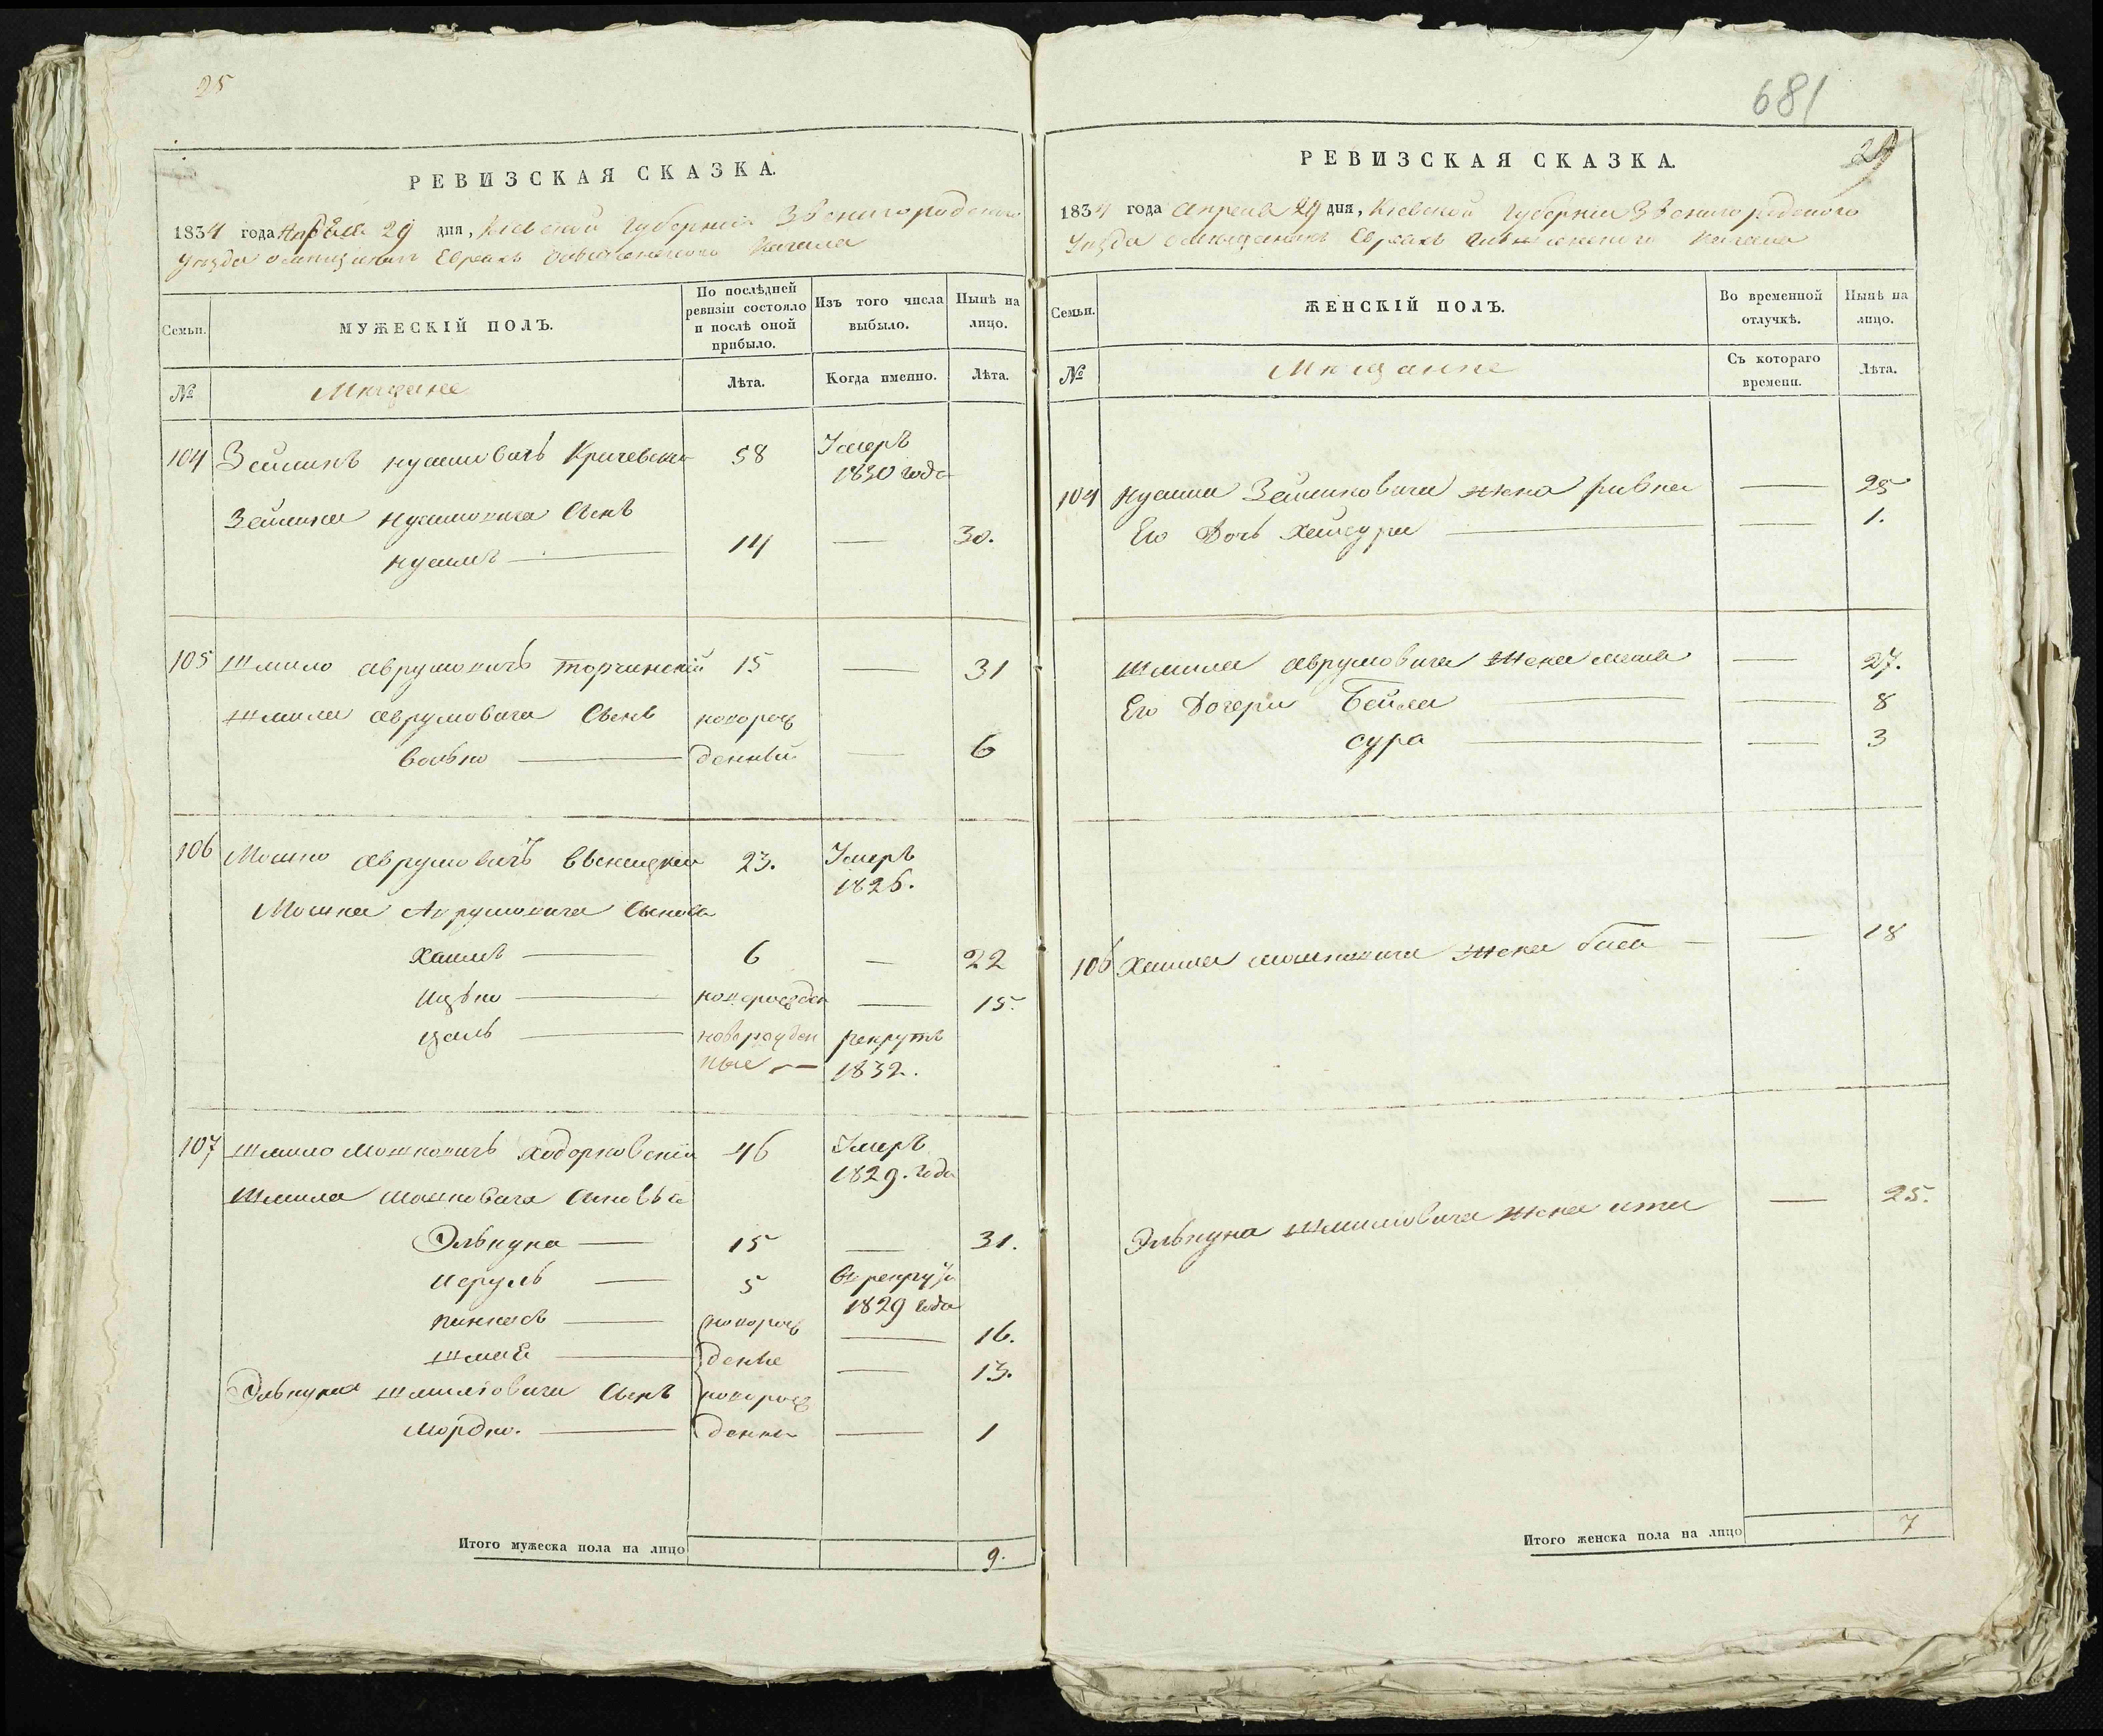 25
РЕВИЗСКАЯ СКАЗКА.
1834 года Апреля 29 дня, Кіевской Губерніи Звенигородского
Уезда о мещанахъ Евреахъ Кагала
Семьи.
МУЖЕСКІЙ ПОЛЪ.
По послѣдней ревизіи состояло и послѣ оной прибыло.
Изъ того числа выбыло.
Нынѣ на лицо.
№
Мещане
Лѣта.
Когда именно.
Лѣта.
104 Зейликъ Нухимовичъ Кричевски 58 Умеръ
1830 года
Зейлика Нухимовича Сынъ
Нухимъ 14 — 30.
105 Шмило Аврумовичъ Торчинскій 15 — 31
Шмила Аврумовича Сынъ новорож
Волько денный — 6
106 Мошко Аврумовичъ 23. Умеръ
1826.
Мошка Аврумовича Сынова
Хаимъ 6 — 22
Ицько новорожден — 15.
новорожден рекрутъ
ные 1832.
107 Шмило Мошковичъ Ходорковскій 46 Умеръ
1829. года
Шмила Мошковича Сыновья
Элькуна 15 — 31.
Исруль 5 в рекруты
1829 года
Пинхасъ новорож — 16.
денные — 13.
Элькуна Шмиловича Сынъ новорож
Мордко. денны — 1
Итого мужеска пола на лицо 9.
681
29
РЕВИЗСКАЯ СКАЗКА.
1834 года Апреля 29 дня, Кіевской Губерніи Звенигородского
Уезда о мещанахъ Евреахъ Кагала
Семьи.
ЖЕНСКІЙ ПОЛЪ.
Во временной отлучкѣ.
Нынѣ на лицо.
№
Мещанне
Съ котораго времени.
Лѣта.
104 Нухима Зейликовича жена Ривка — 25
Его Дочь Хайсура — 1.
Шмила Аврумовича жена — 27.
Его Дочери Бейла — 8
Сура — 3
106 Хаима Мошковича жена Бася — 18
Элькуна Шмиловича жена Ита — 25.
Итого женска пола на лицо 7